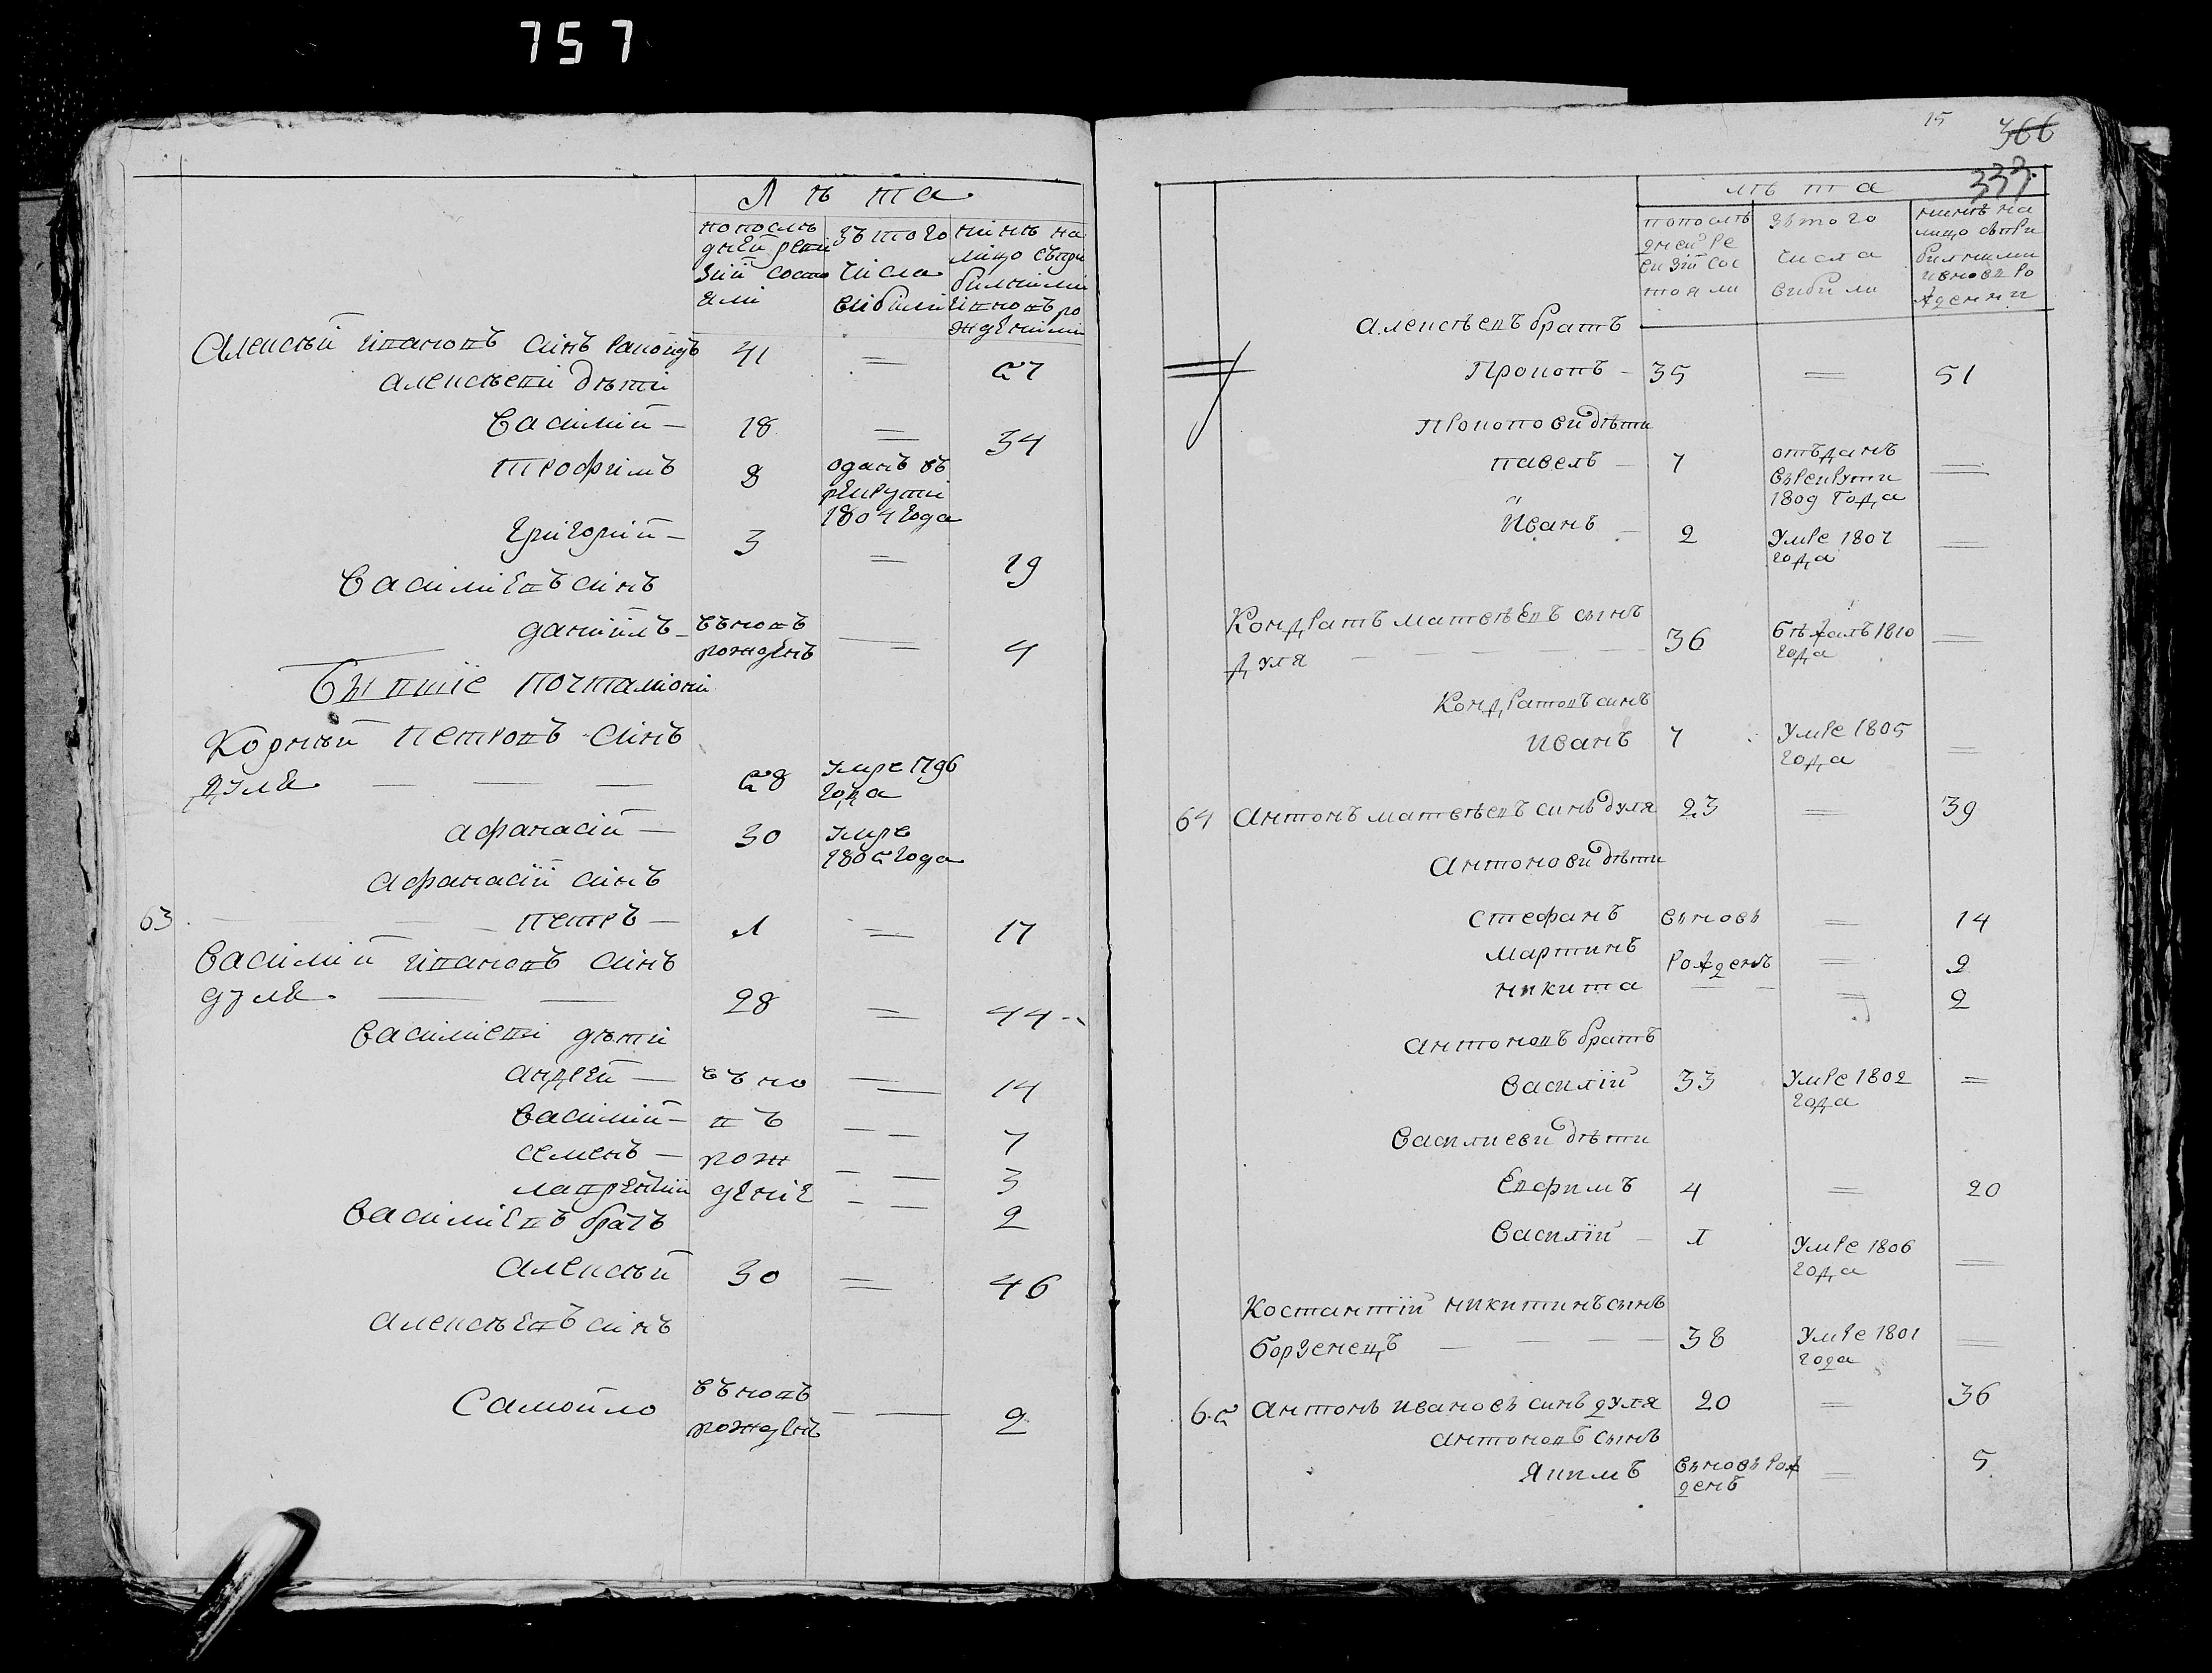 757
Л ѣ та
попослѣ
дней реви
зии состо
яли
зъ того
числа
выбили
нинѣ на
лицо съпри
билими
ивновъ ро
ждениими
Алексѣй ивановъ синъ 41 = 57
алексѣеви дѣти
василий — 18 = 34
трофимъ 8 оданъ въ
рекрути
1804 года
григорий — 3 = 19
василиевъ синъ
даниилъ — въновъ
рожденъ = 4
Бывшiе почталиони
Корнѣй петровъ синъ
дуля — — — 58 умре 1796
года
афанасий — 30 умре
1805 года
афанасiй синъ
63 петръ — 1 = 17
василий ивановъ синъ
дуля — — 28 = 44
василиеви дѣти
андрей — въ но = 14
василий — въ = 7
семенъ — рож = 3
лаврентий дение = 2
василиевъ братъ
алексѣй 30 = 46
алексѣевъ синъ
Самойло въновъ
рожденъ = 2
15 366
333
лѣ т а
попослѣ
дней ре
визiи сос
тояли
зътого
числа
вибили
нинѣ на
лицо съпри
билними
ивновъ ро
ждении
алексѣевъ братъ
Прокопъ — 35 = 51
прокопови дѣти
павелъ — 7 отъданъ
въ рекрути
1809 года =
Иванъ — 2 умре 1807
года =
Кондратъ матвѣевъ сынъ
дуля — — — 36 бѣжалъ 1810
года =
Кондратовъ синъ
иванъ 7 умре 1805
года =
64 Антонъ матвѣевъ синъ дуля 23 = 39
антонови дѣти
стефанъ вьновь = 14
мартинъ рожденъ = 2
никита — — = 2
антоновъ братъ
василiй 33 умре 1802
года =
василиеви дѣти
Евфимъ 4 = 20
василiй — 1 умре 1806
года =
Костантiй никитинъ сынъ
борзенецъ — — — 38 умре 1801
года =
65 антонъ ивановъ синъ дуля 20 = 36
антоновъ сынъ
якимъ вьновь рож
денъ = 5